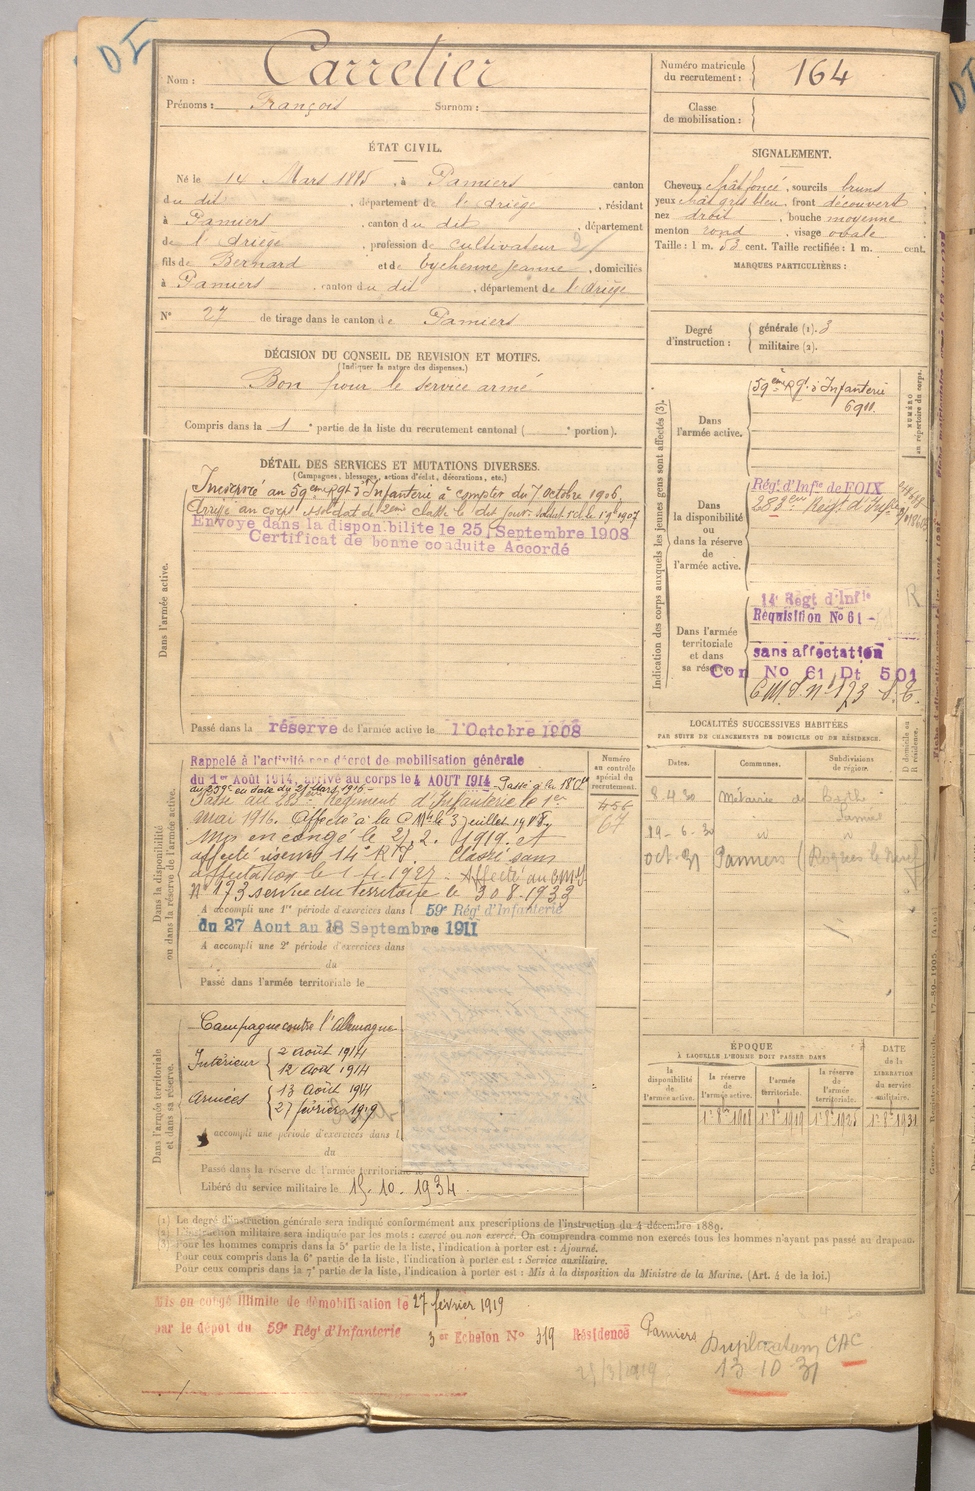 DI
Nom : Carretier
Prénoms : François Surnom :
Numéro matricule du recrutement : 164
Classe de mobilisation :
ÉTAT CIVIL.
Né le 14 Mars 1885, à Pamiers canton
du dit, département de l'Ariège, résidant
à Pamiers, canton du dit, département
de l'Ariège, profession de cultivateur
fils de Bernard et de Eychenne Jeanne, domiciliés
à Pamiers, canton du dit, département de l'Ariège
N° 27 de tirage dans le canton de Pamiers
SIGNALEMENT.
Cheveux chât foncé, sourcils bruns
yeux chât gris bleu, front découvert
nez droit, bouche moyenne
menton rond, visage ovale
Taille : 1 m. 53 cent. Taille rectifiée : 1 m. cent.
MARQUES PARTICULIÈRES :
Degré d'instruction : générale (1). 3
militaire (2).
DÉCISION DU CONSEIL DE REVISION ET MOTIFS.
(Indiquer la nature des dispenses.)
Bon pour le service armé
Compris dans la 1e partie de la liste du recrutement cantonal ( e portion).
DÉTAIL DES SERVICES ET MUTATIONS DIVERSES.
(Campagnes, blessures, actions d'éclat, décorations, etc.)
Dans l'armée active.
Incorporé au 59ème Rgt d'Infanterie à compter du 7 Octobre 1906.
Arrivé au corps et soldat de 2ème classe le dit jour.
Envoyé dans la disponibilité le 25 Septembre 1908
Certificat de bonne conduite Accordé
Passé dans la réserve de l'armée active le 1 Octobre 1908
Indication des corps auxquels les jeunes gens sont affectés (3).
NUMÉRO au répertoire du corps.
Dans l'armée active.
59ème Rgt d'Infanterie
6911
Dans la disponibilité ou dans la réserve de l'armée active.
Rég. d'Infie de FOIX
283ème Régt d'Infie
Dans l'armée territoriale et dans sa réserve.
14e Régt d'Infie
Réquisition No 61 -
sans affectation
Con No 61 Dt 501
C.M.I. n° 173
R
Dans la disponibilité ou dans la réserve de l'armée active.
Rappelé à l'activité par décret de mobilisation générale
du 1er Août 1914, arrivé au corps le 4 AOUT 1914
au 259e en date du 21 Mars 1916 -
Passé au 283ème Régiment d'Infanterie le 1er
mai 1916. Affecté à la C.M. le 3 juillet
Mis en congé le 27.2.1919. et
affecté réserve 14e R.I. Classé sans
affectation le
N° 173 service du territoire le 30 8. 1933
A accompli une 1re période d'exercices dans l 59e Rég. d'Infanterie
du 27 Aout au 18 Septembre 1911
A accompli une 2e période d'exercices dans
du
Passé dans l'armée territoriale le
Numéro au contrôle spécial du recrutement.
456
67
LOCALITÉS SUCCESSIVES HABITÉES
PAR SUITE DE CHANGEMENTS DE DOMICILE OU DE RÉSIDENCE.
D domicile ou R résidence.
Dates. Communes. Subdivisions de région.
8.4.30 Métairie de
19-6-30
oct. 31 Pamiers (Roques le Neuf
Dans l'armée territoriale et dans sa réserve.
Campagne contre l'Allemagne
Intérieur { 2 août 1914
12 août 1914
Armées { 13 août 1914
27 février 1919
A accompli une période d'exercices dans l
du
Passé dans la réserve de l'armée territoriale
Libéré du service militaire le 15. 10. 1934.
ÉPOQUE
À LAQUELLE L'HOMME DOIT PASSER DANS
la disponibilité de l'armée active.
la réserve de l'armée active.
l'armée territoriale.
la réserve de l'armée territoriale.
DATE de la LIBÉRATION du service militaire.
1er 8bre 1908 1er 8bre 1919 1er 8bre 1925 1er 8bre 1931
(1) Le degré d'instruction générale sera indiqué conformément aux prescriptions de l'instruction du 4 décembre 1889.
(2) L'instruction militaire sera indiquée par les mots : exercé ou non exercé. On comprendra comme non exercés tous les hommes n'ayant pas passé au drapeau.
(3) Pour les hommes compris dans la 5e partie de la liste, l'indication à porter est : Ajourné.
Pour ceux compris dans la 6e partie de la liste, l'indication à porter est : Service auxiliaire.
Pour ceux compris dans la 7e partie de la liste, l'indication à porter est : Mis à la disposition du Ministre de la Marine. (Art. 4 de la loi.)
Mis en congé illimité de démobilisation le 27 février 1919
par le dépôt du 59e Rég. d'Infanterie 3er Echelon No 319 Résidence Pamiers
25/3/1919
Duplicatum CAC
13 10 31